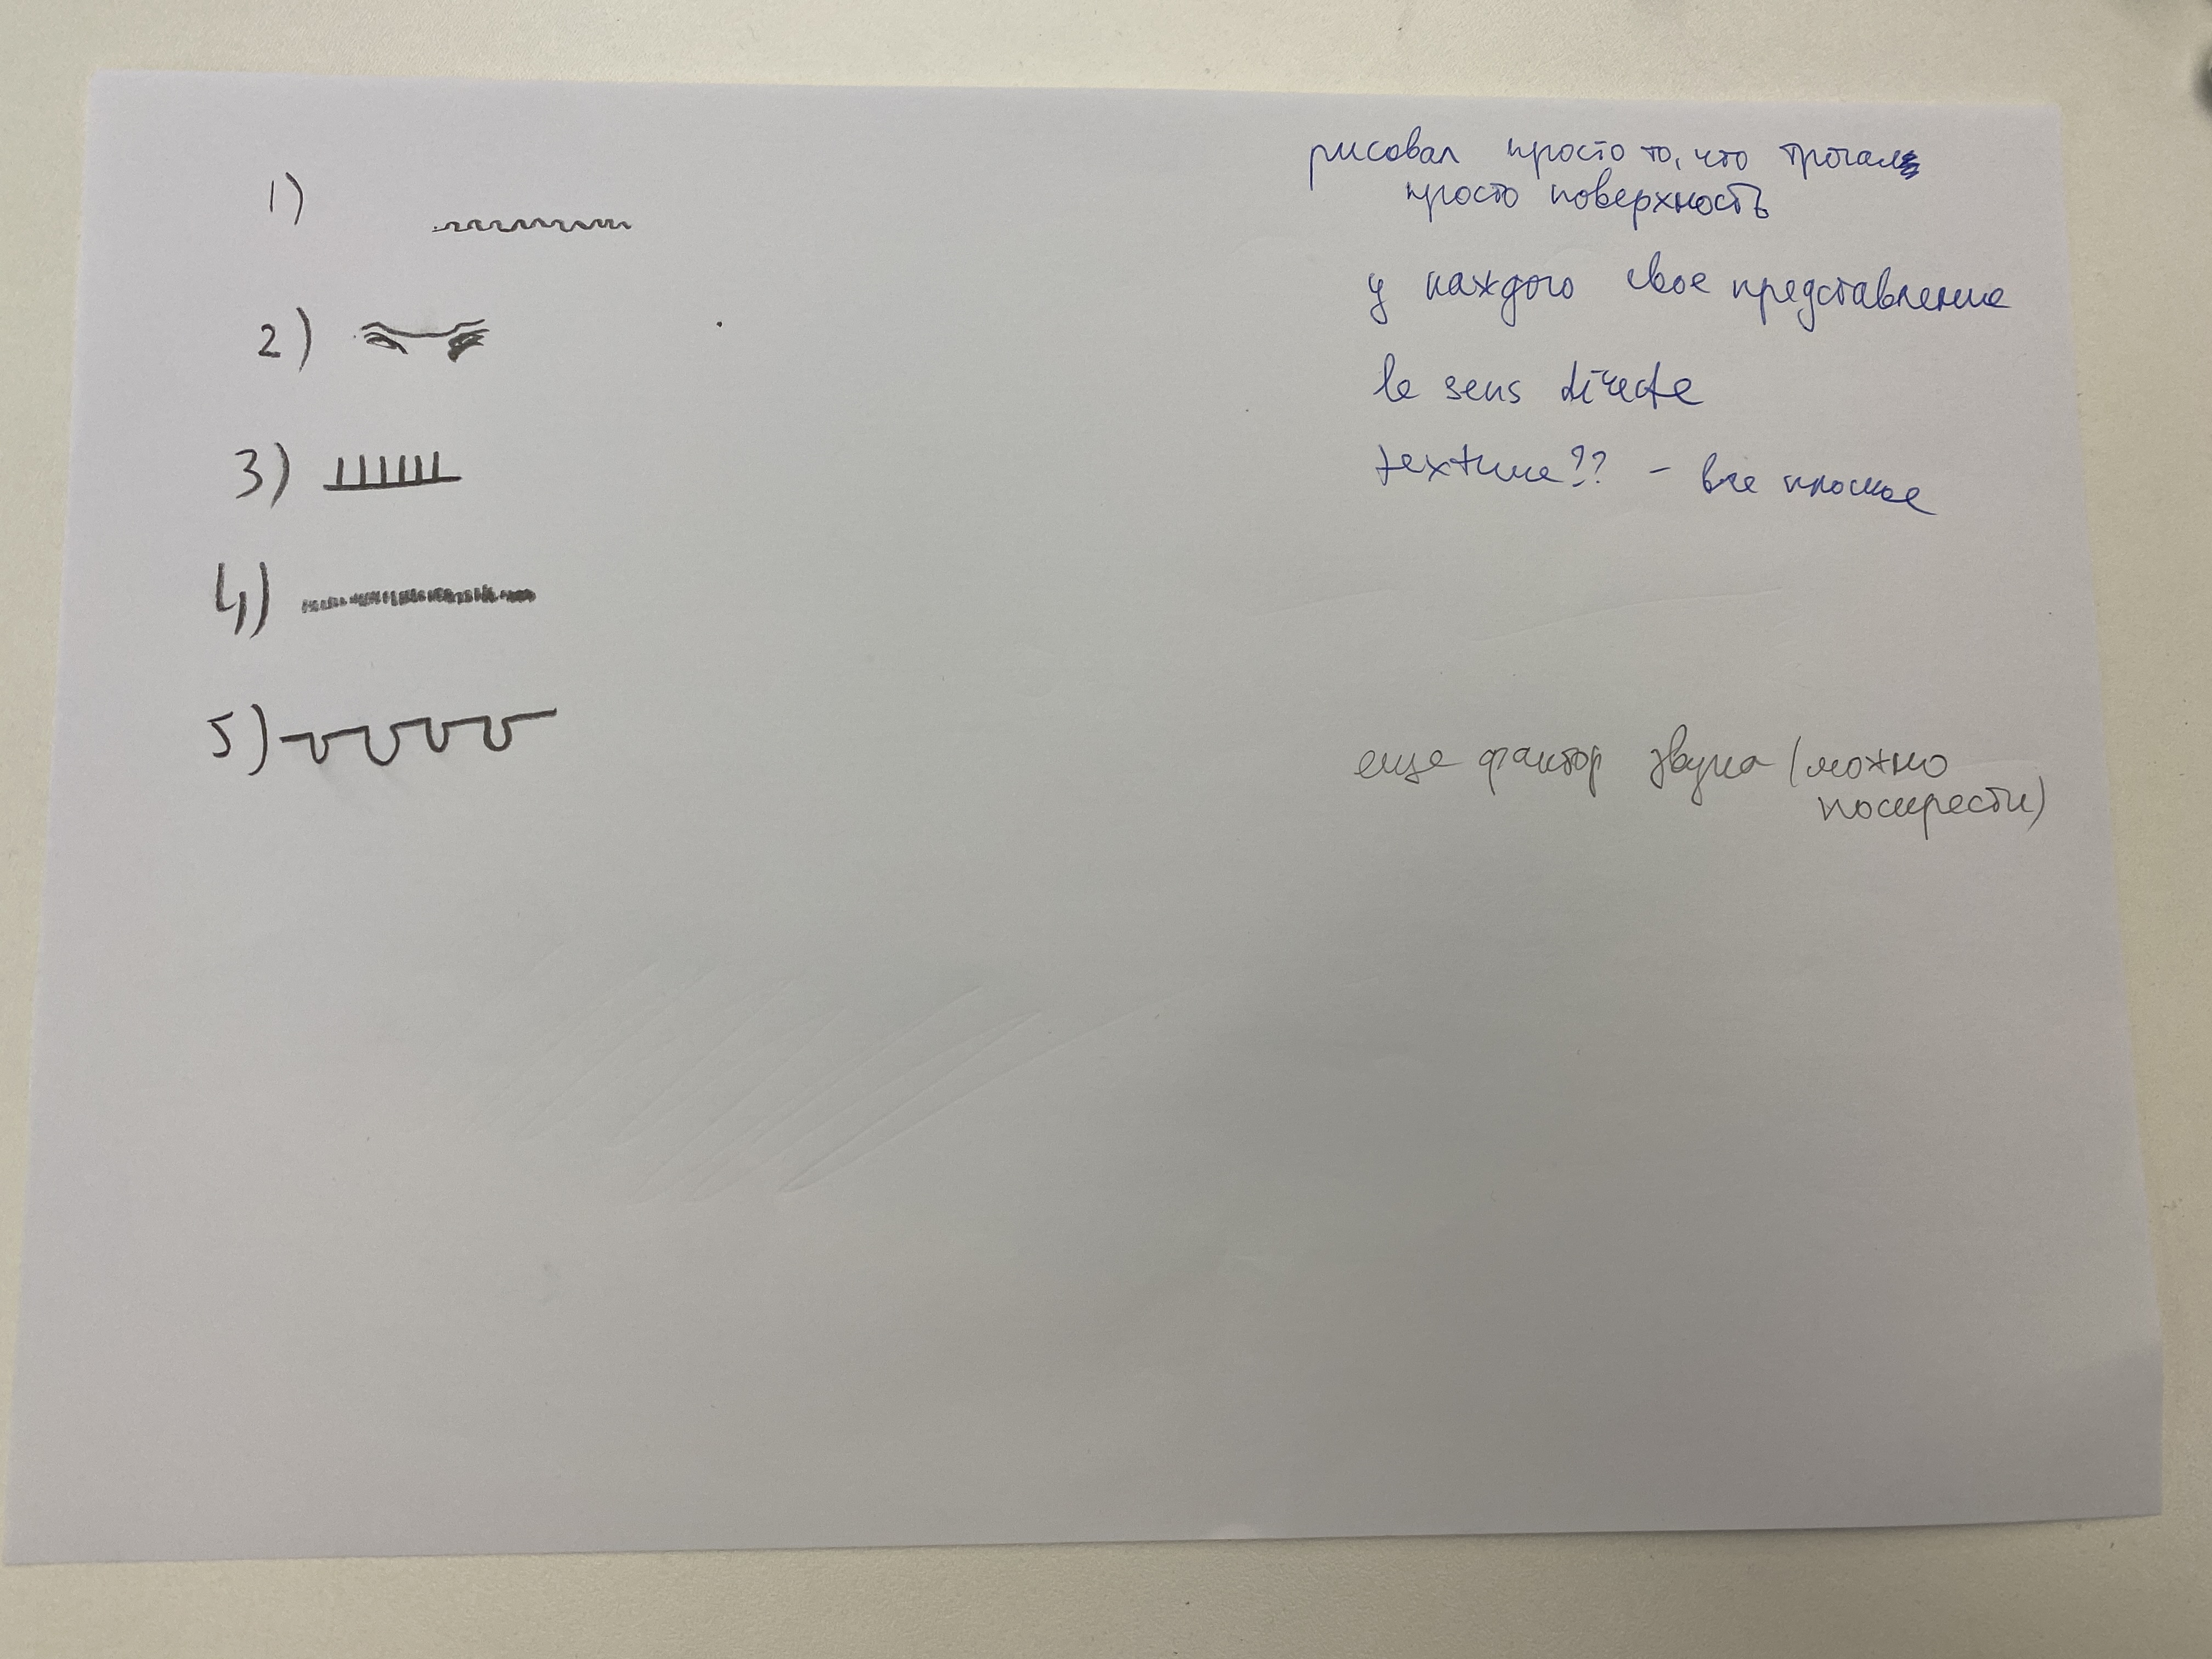 1)
2)
3)
4)
5)
рисовал просто то, что трогал
просто поверхность
у каждого свое представление
le sens directe
texture?? - все плоское
еще фактор звука (можно
поскрести)